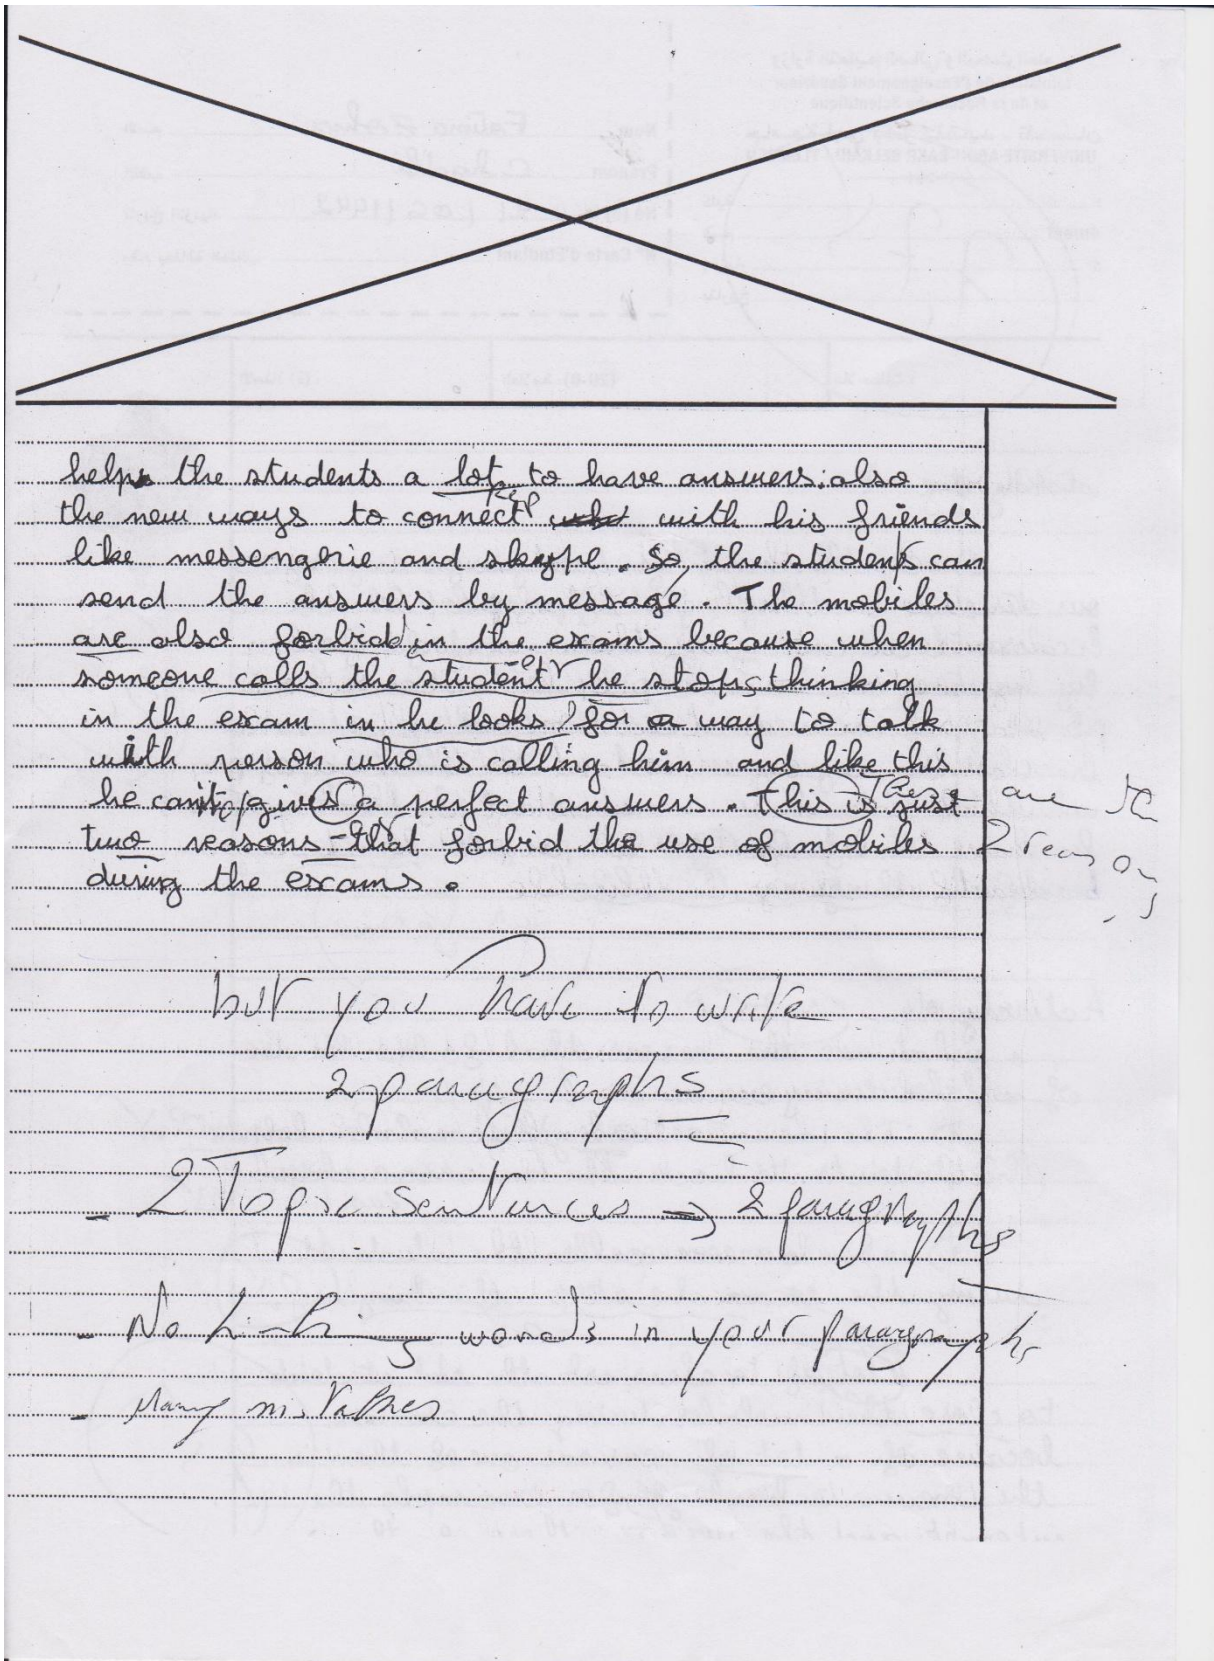 helps the students a lot to have answers, also
the new ways to connect with his friends
like messengerie and skype. So, the students can
send the answers by message. The mobiles
are also forbid in the exams because when
someone calls the student he stops thinking
in the exam in he looks for a way to talk
with person who is calling him and like this
he can't gives a perfect answers. This is just These are the
two reasons that forbid the use of mobiles 2 reasons
during the exams.
but you have to write
2 paragraphs
- 2 Topic sentences → 2 paragraphs
- No linking words in your paragraphs
- Many mistakes.